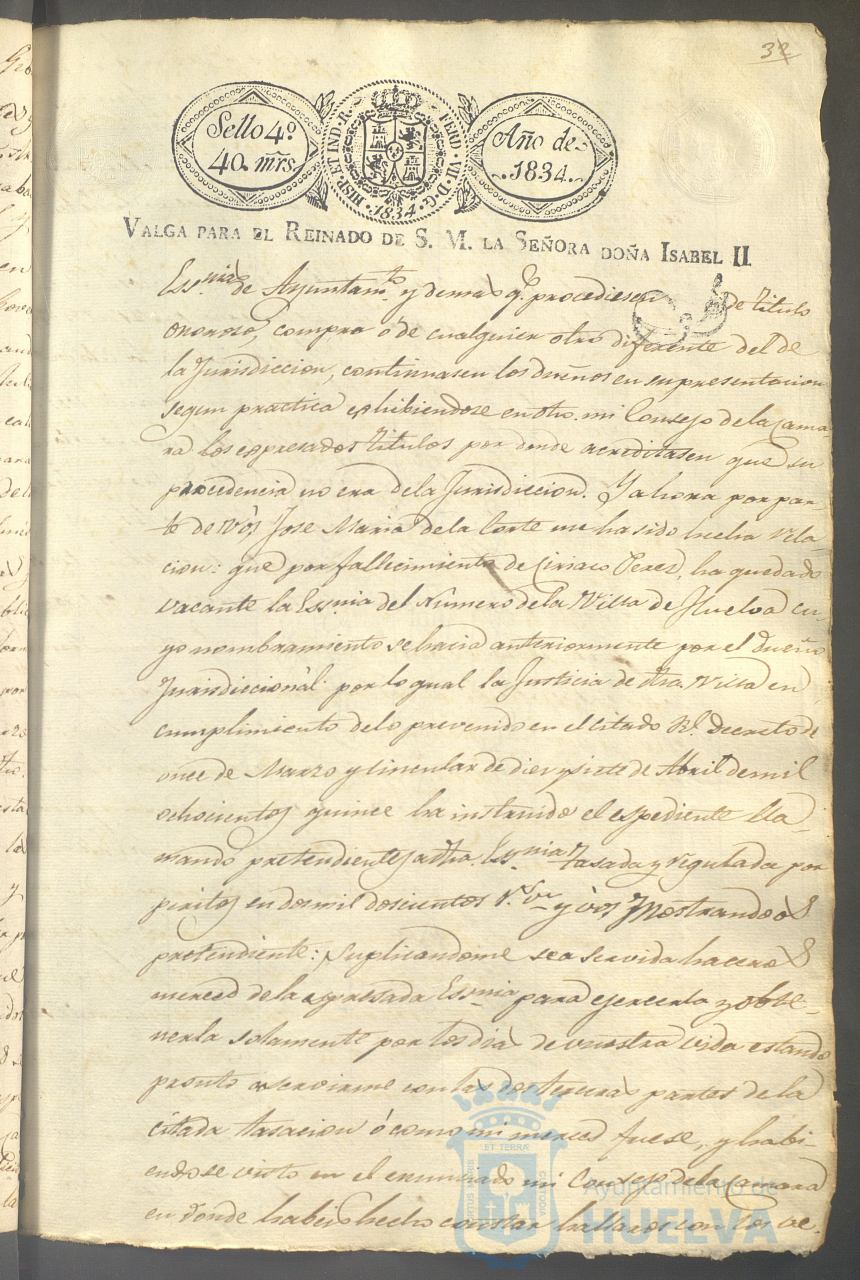 32
Sello 4º
40. mrs.
HISP. ET IND. R.
FERD. VII. D. G.
.1834.
Año de
1834.
VALGA PARA EL REINADO DE S. M. LA SEÑORA DOÑA ISABEL II
Ess.nias de Ayuntam.to y demas q.e procediesen de titulo
oneroso, compra ó de cualquier otro diferente del de
la Jurisdiccion, continuasen los dueños en su presentacion
segun practica exhibiendose en dho. mi Consejo de la Cama
ra los espresados titulos por donde acreditasen que su
procedencia no era de la Jurisdiccion. Y ahora por par-
te de vós José Maria de la Corte me ha sido hecha rela-
cion: que por fallecimiento de Ciriaco Perez, ha quedado
vacante la Ess.nia del Numero de la Villa de Huelva cu-
yo nombramiento se hacia anteriormente por el dueño
Jurisdiccional: por lo qual la Justicia de dha. Villa en
cumplimiento de lo prevenido en el citado R.l Decreto de
once de Marzo y circular de diez y siete de Abril de mil
ochocientos quince ha instruido el espediente lla-
mando pretendientes a dha. Ess.nia tasada y regulada por
peritos en dos mil doscientos r.s y vós mostrandoos
pretendiente: suplicandome sea servida haceros
merced de la espresada Ess.nia para ejercerla y obte-
nerla solamente por los dias de vuestra vida estando
pronto a servirme con las dos terceras partes de la
citada tasacion ó como mi merced fuese, y habi-
endose visto en el enunciado mi Consejo de la Camara
en donde habeis hecho constar hallaros con los re-
ET TERRÆ
CUSTODIA
Ayuntamiento de
HUELVA